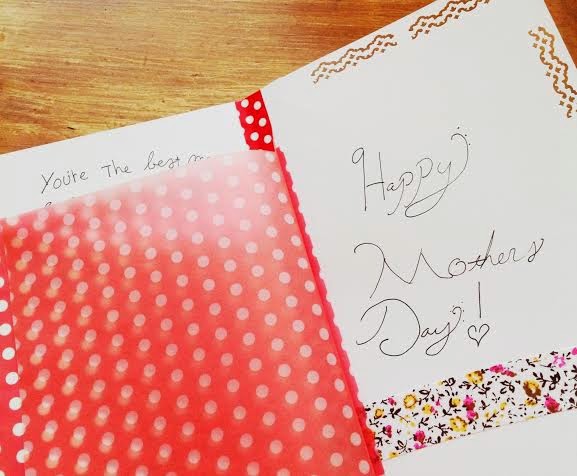 You're The best
Happy
Mothers
Day!